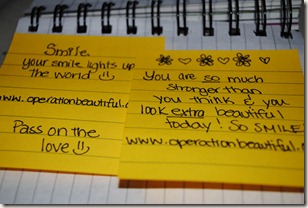 Smile.
your smile lights up
the world
www.operationbeautiful.c
Pass on the
love
You are so much
stronger than
you think & you
look extra beautiful
today! So SMILE
www.operationbeautiful.